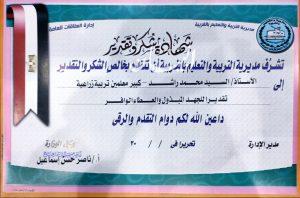 مديرية التربية والتعليم بالغربية
إدارة العلاقات العامة
شهادة شكر وتقدير
تتشرف مديرية التربية والتعليم بالغربية أن تتقدم بخالص الشكر والتقدير
إلى
الأستاذ/ السيد محمد راشد - كبير معلمين تربية زراعية
تقديرا للجهد المبذول والعطاء الوافر
داعين الله لكم دوام التقدم والرقى
مدير الإدارة
تحريرا فى / / ٢٠
أ/ ناصر حسن إسماعيل